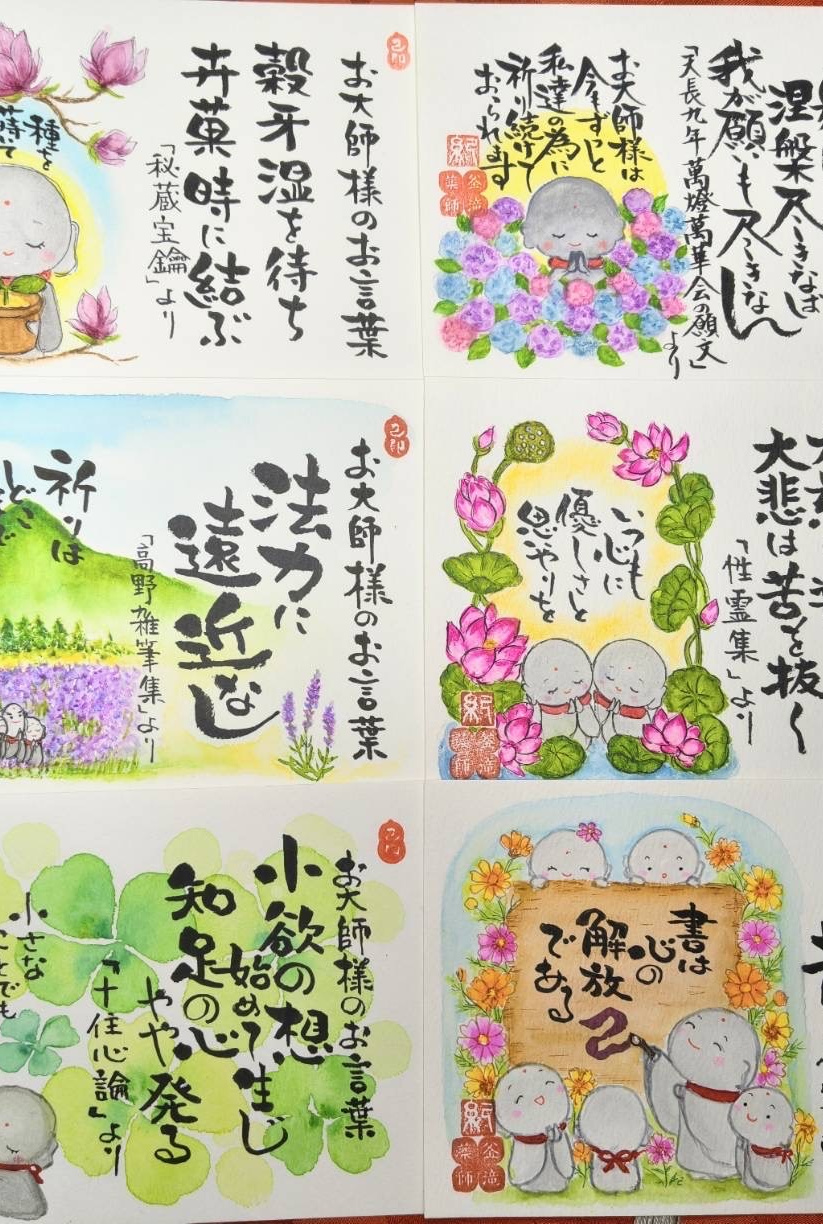 お大師様のお言葉
穀牙湿を待ち
卉菓時に結ぶ
「秘蔵宝鑰」より
種を
蒔いて
涅槃尽きなば
我が願いも尽きなん
「天長九年 萬燈萬華会の願文」より
お大師様は
今もずっと
私達の為に
祈り続けて
おられます
釜滝
薬師
お大師様のお言葉
法力に
遠近なし
「高野雑筆集」より
祈りは
どこまで
大悲は苦を抜く
「性霊集」より
いつも
心に
優しさと
思いやりを
釜滝
薬師
お大師様のお言葉
小欲の想
始めて生じ
知足の心
やや発る
「十住心論」より
小さな
ことでも
書は
心の
解放
である
釜滝
薬師